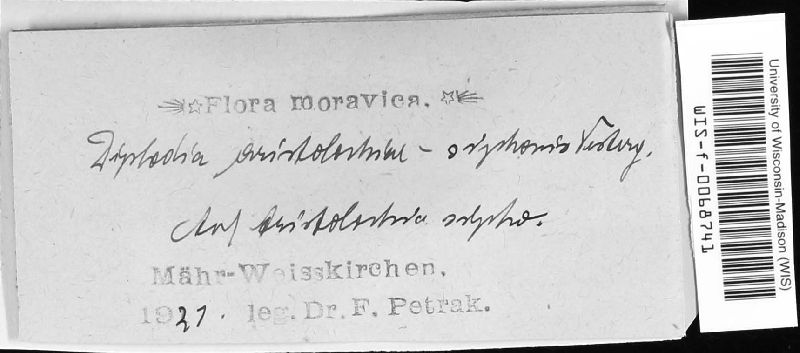 Flora moravica.
Diplodia aristolochiae-siphonis Vesterg.
Auf Aristolochia sipho.
Mähr-Weisskirchen,
1921. leg. Dr. F. Petrak.
University of Wisconsin-Madison (WIS)
WIS-f-0068741